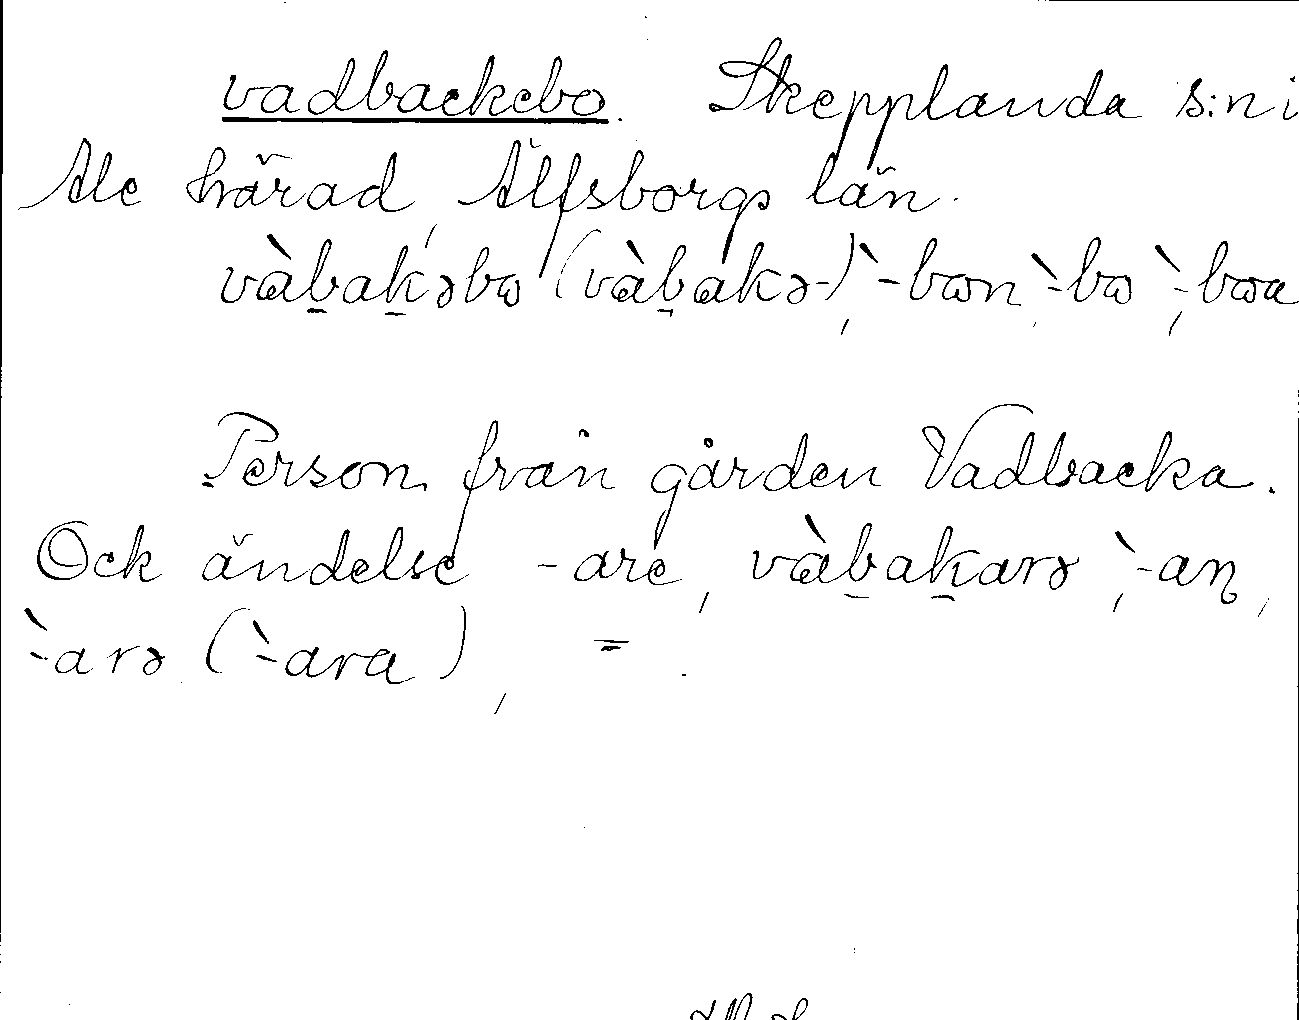 vadbackebo. Skepplanda s:n i
Ale härad, Älfsborgs län.
vàb̠ak̠əbɷ (vàb̠akə-), `-bɷn, `-bɷ, `-bɷa
Person från gården Vadbacka.
Ock ändelse -are, vàb̠ak̠arə, `-aɳ,
`-arə (`-ara), =.